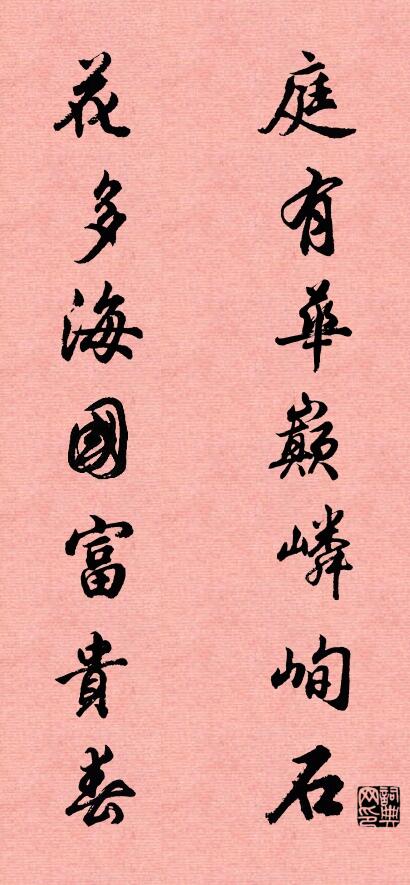 庭有華巔嶙峋石
花多海國富貴春
詞典网印